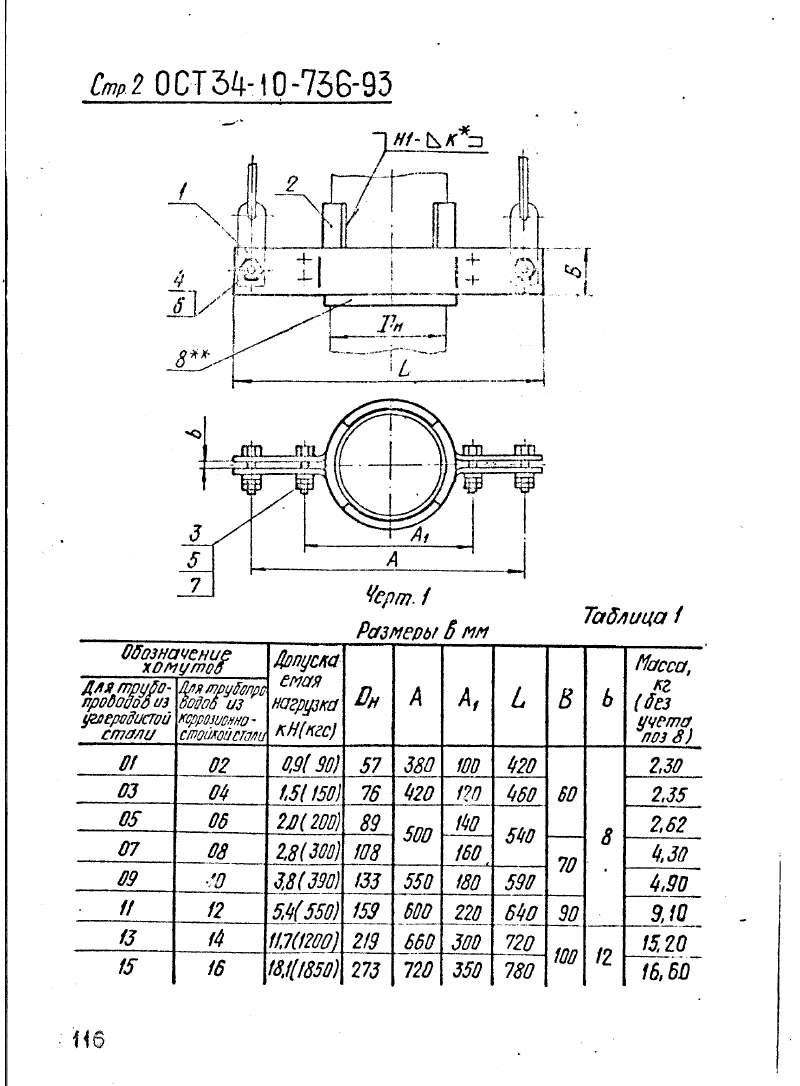 Стр.2 ОСТ 34-10-736-93
Н1-◺ К*
1
2
4
6
8**
Б
L
b
3
5
7
А₁
А
Черт. 1
Таблица 1
Размеры в мм
Обозначение хомутов
Для трубопроводов из углеродистой стали
Для трубопроводов из коррозионно-стойкой стали
Допускаемая нагрузка кН(кгс)
Dн
А
А₁
L
В
b
Масса, кг (без учета поз 8)
01 02 0,9(90) 57 380 100 420 60 8 2,30
03 04 1,5(150) 76 420 120 460 2,35
05 06 2,0(200) 89 500 140 540 2,62
07 08 2,8(300) 108 160 70 4,30
09 10 3,8(390) 133 550 180 590 4,90
11 12 5,4(550) 159 600 220 640 90 9,10
13 14 11,7(1200) 219 660 300 720 100 12 15,20
15 16 18,1(1850) 273 720 350 780 16,60
116